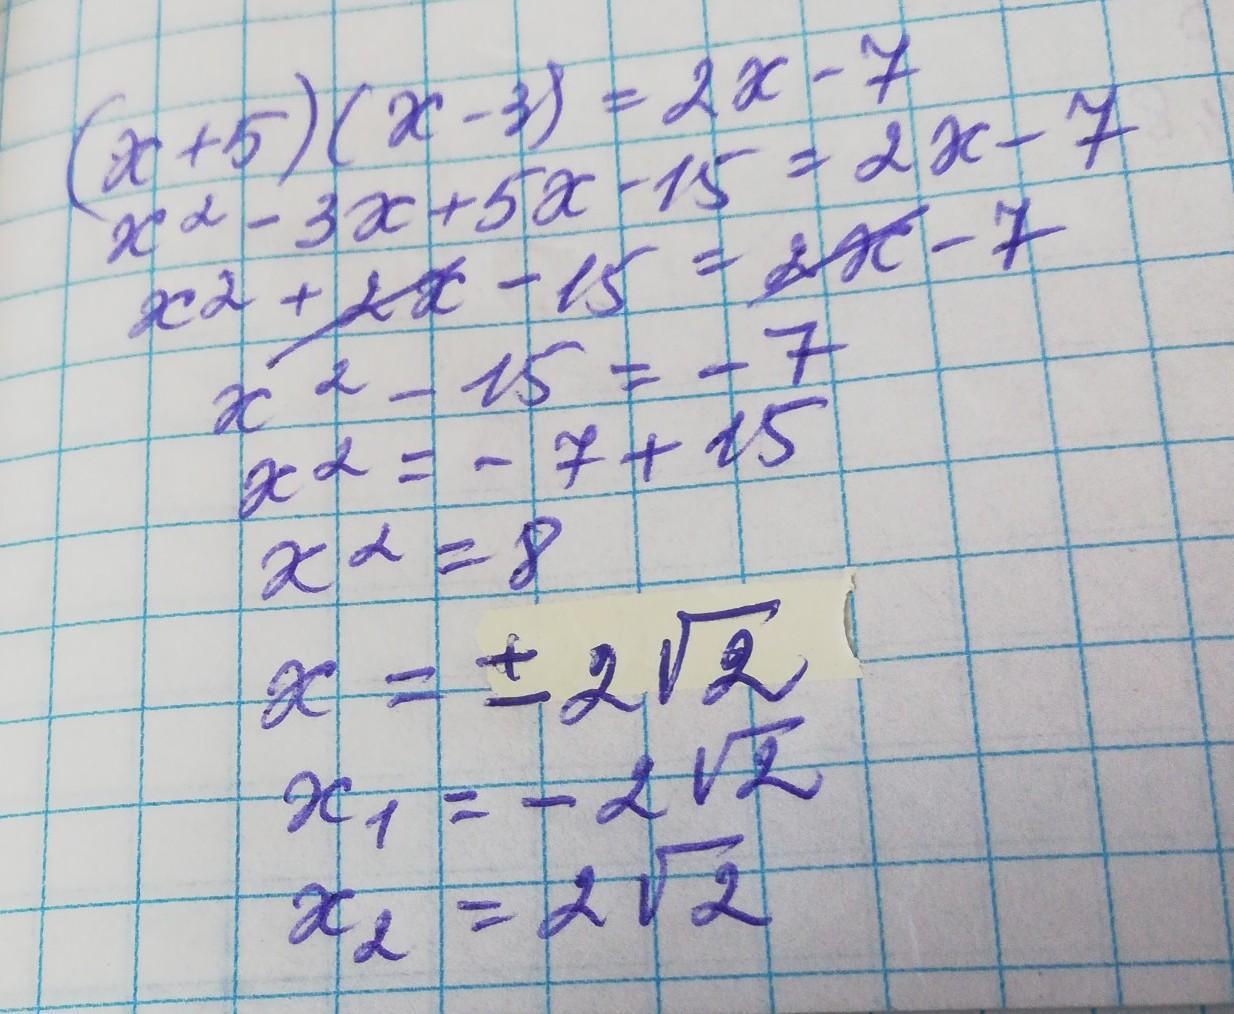 (x+5)(x-3)=2x-7
x²-3x+5x-15=2x-7
x²+2x-15=2x-7
x²-15=-7
x²=-7+15
x²=8
x=±2√2
x₁=-2√2
x₂=2√2